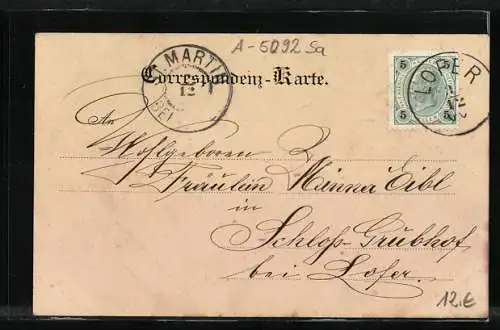 A-5092 Sa
ST. MARTIN BEI
12
Correspondenz-Karte.
5 5
5 5
LOFER
12
An
Wohlgeboren
Fräulein Minna Eibl
in
Schloß-Grubhof
bei Lofer.
12.€